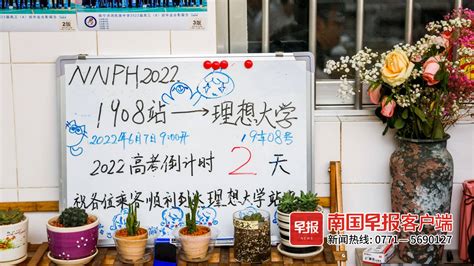 2版
3版
NNPH2022
1908站→理想大学
2022年6月7日 9:00开
19车08号
2022高考倒计时 2 天
祝各位乘客顺利到达理想大学站
早报
NEWS
南国早报客户端
新闻热线: 0771—5690127